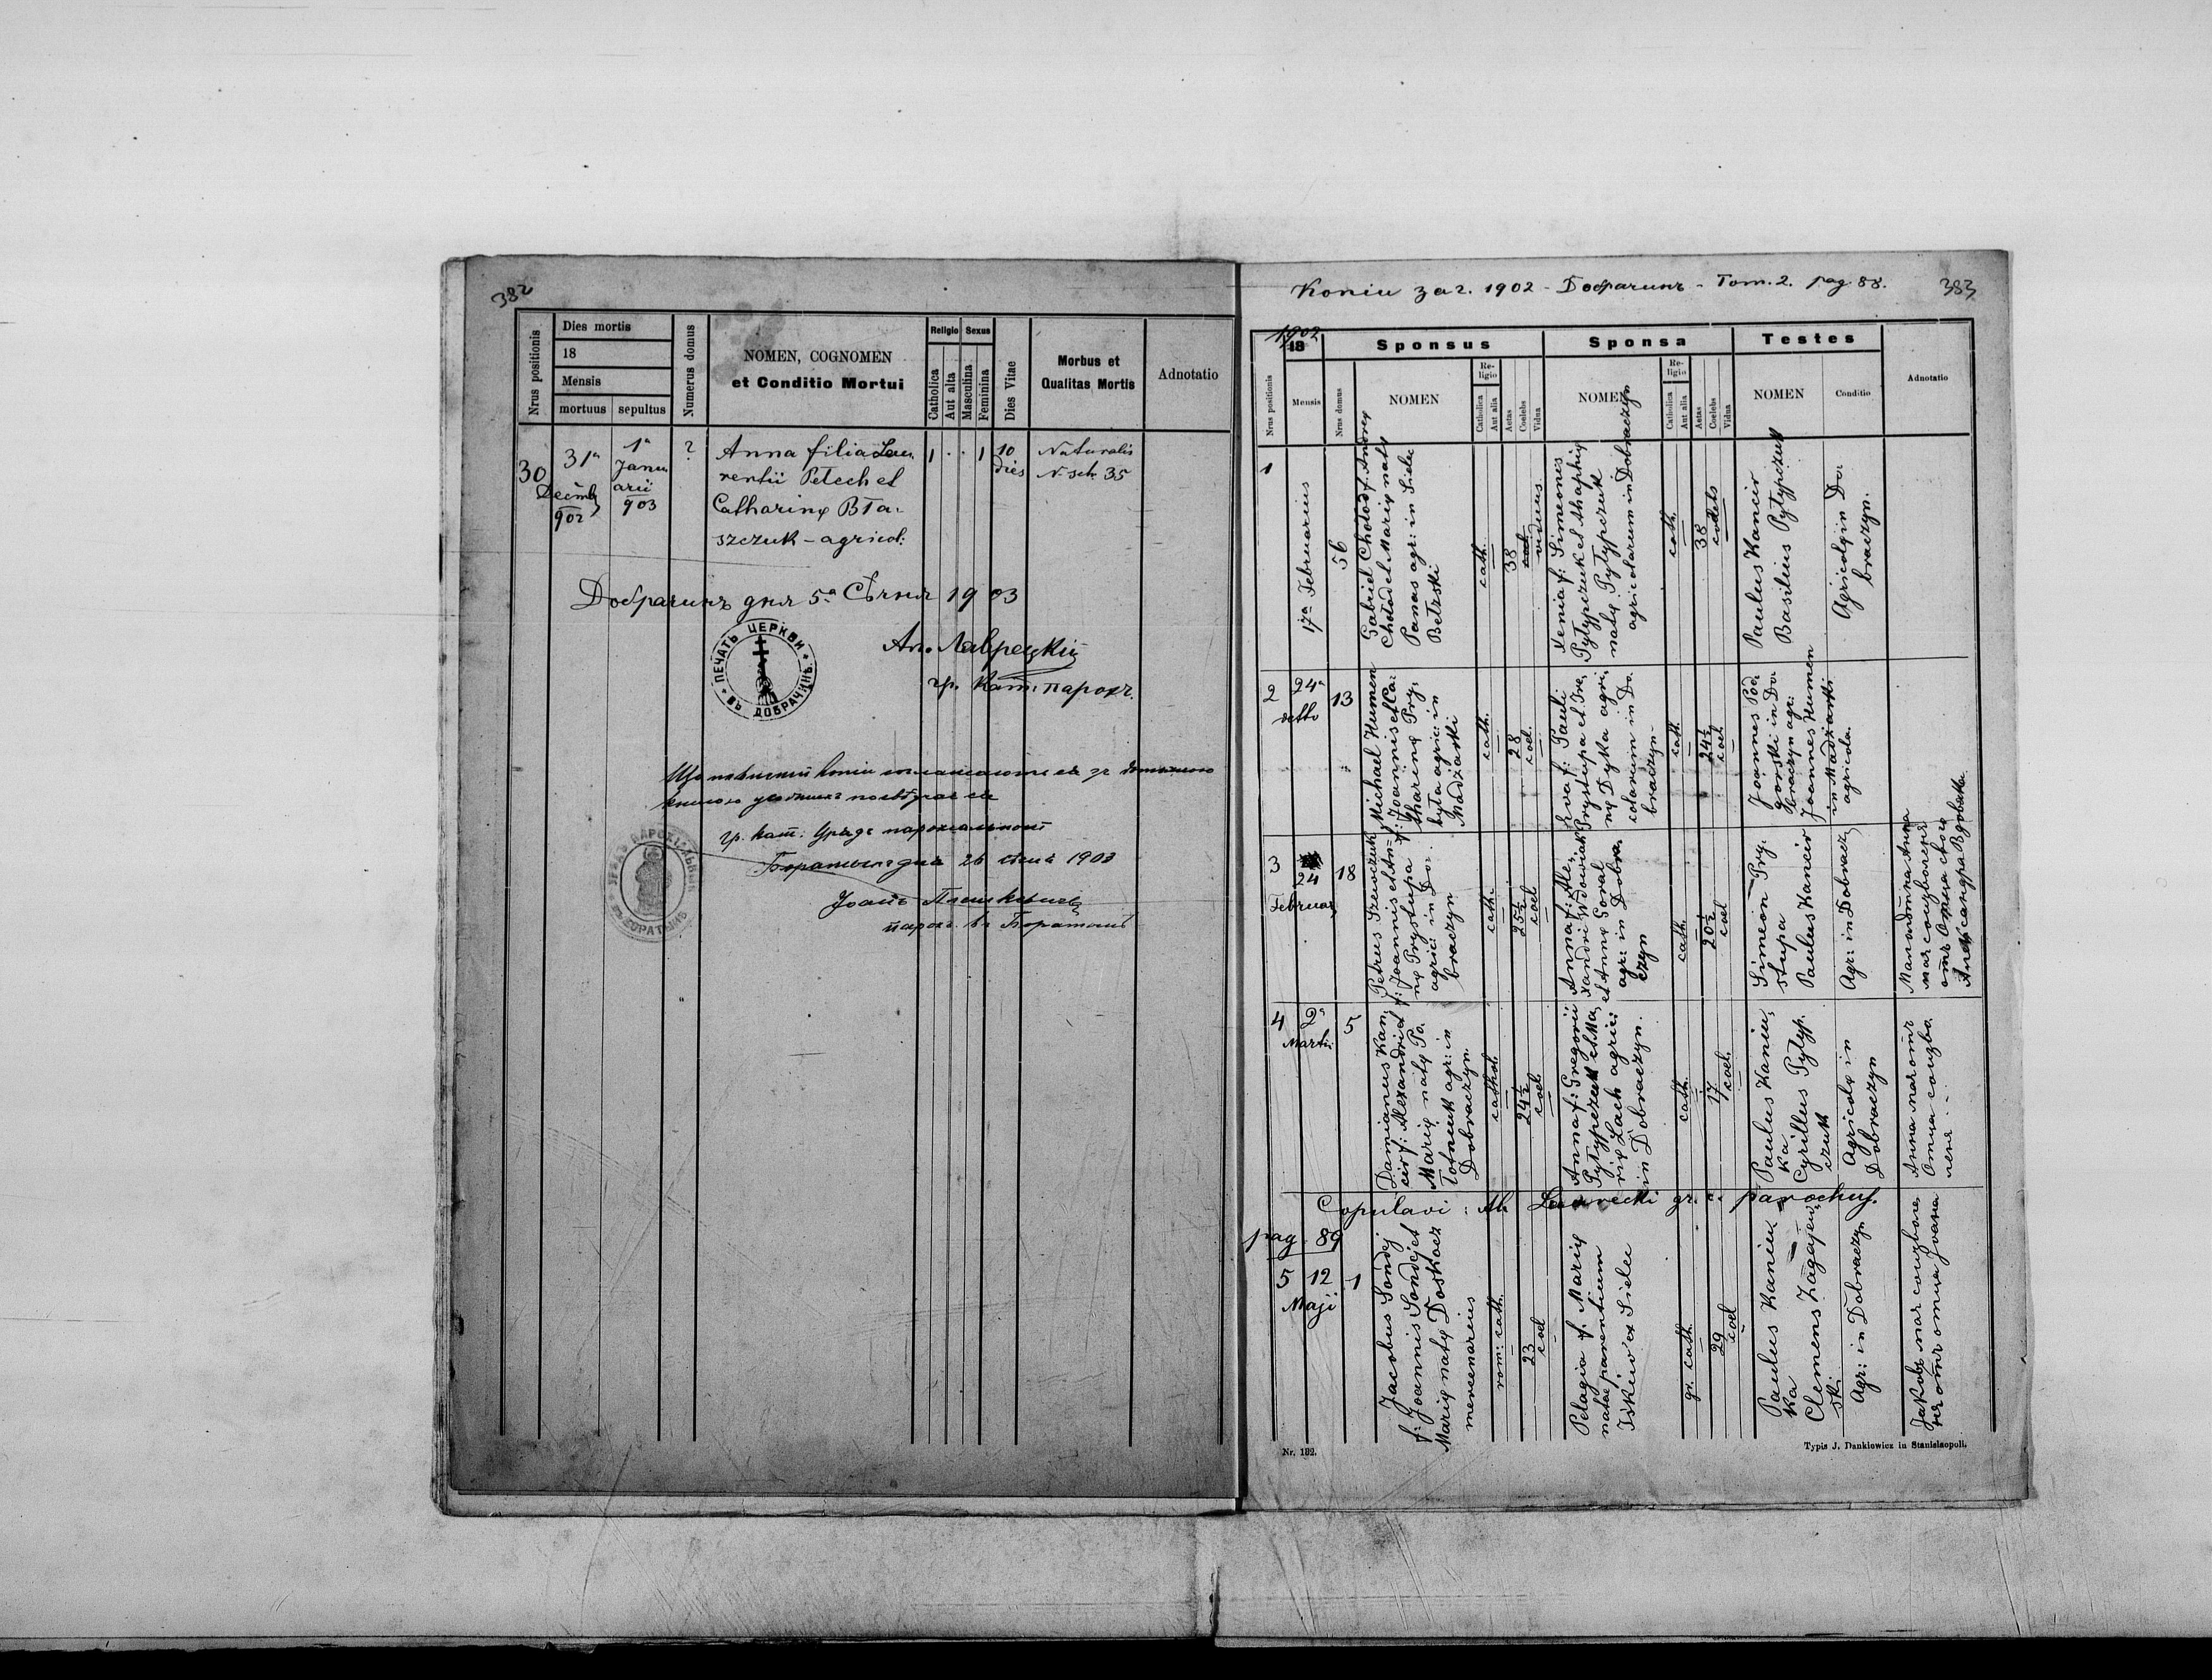 382
Nrus positionis
Dies mortis
18
Mensis
mortuus
sepultus
Numerus domus
NOMEN, COGNOMEN
et Conditio Mortui
Religio
Sexus
Catholica
Aut alia
Masculina
Feminina
Dies Vitae
Morbus et
Qualitas Mortis
Adnotatio
30
31a
Decmb
902
1a
Janu
arii
903
?
Anna filia Lau
rentii Petech et
Catharinę Bła-
szczuk – agricol:
1
1
10
dies
Naturalis
N. sch. 35
Добрачинъ дня 5а Сѣчня 1903
ПЕЧАТЬ ЦЕРКВИ
ВЪ ДОБРАЧИНѢ
Ал. Лаврецкій
гр. кат. парохъ.
гр. кат. Урядъ парохіальный
26 1903
Іоаннъ
парохъ въ Боратынѣ
Копіи за г. 1902 - Добрачинъ - Том. 2. pag. 88.
383
1902
18
Sponsus
Sponsa
Testes
Nrus positionis
Mensis
Nrus domus
NOMEN
Religio
Catholica
Aut alia
Aetas
Coelebs
Vidua
NOMEN
Religio
Catholica
Aut alia
Aetas
Coelebs
Vidua
NOMEN
Conditio
Adnotatio
1
17a Februarius
56
Gabriel Chołod f. Andreę
Chołod et Marię natę
Panas agr: in Sielec
Bełzski
cath.
38
viduus
Xenia f: Simeonis
Pyłypczuk et Ahaphię
natę Pyłypczuk
agricolarum in Dobraczyn
cath.
38
coelebs
Paulus Kancir
Basilius Pyłypczuk
Agricolę in Do-
braczyn.
2
24a
detto
13
Michael Humen
f: Joannis et Ca-
tharinę Pry-
była agric: in
Madżarki
cath.
28
coel.
Eva f: Pauli
Prystupa et Ire-
nę Dyka agri-
colarum in Do-
braczyn-
cath.
24½
coel
Joannes Pod-
gorski in Do-
braczyn agr:
Joannes Humen
in Madżarki
agricola.
3
24
Februar
18
Petrus Szewczuk
f: Joannis et An-
nę Prystupa
agric: in Do-
braczyn
cath.
25½
coel
Anna f: Ale-
xandri Wdowiak
et Annę Goral
agr: in Dobra-
czyn
cath.
20½
coel
Simeon Pry-
stupa
Paulus Kancir
Agr: in Dobracz
Малолѣтна Анна
має соизволеня
отъ Отца свого
Александра Вдовяка
4
2a
Martii
5
Damianus Kan-
cir f: Alexandri et
Marię natę Po-
Tołneuk agr: in
Dobraczyn.
cathol.
24½
coel.
Anna f: Gregorii
Pyłypczuk et Ma-
rię Lach agric:
in Dobraczyn.
cath.
17
coel.
Paulus Kaniu-
ka
Cyrillus Pyłyp-
czuk
Agricolę in
Dobraczyn
Анна має отъ
Отца соизво-
леня..
Copulavi: Al. Ławrecki gr. c. parochus.
pag. 89
5
12
Maji
1
Jacobus Sondej
f: Joannis Sondej et
Marię natę Doskocz
mercenarius
rom: cath.
23
coel
Pelagia f. Marię
natae parentium
Iśkiw ex Sielec
gr. cath.
29
coel
Paulus Kaniu-
ka
Clemens Zagajew-
ski
Agr: in Dobraczyn
Яковъ має соизволе-
нє отъ отца Іоана
Nr. 182.
Typis J. Dankiewicz in Stanislaopoli.